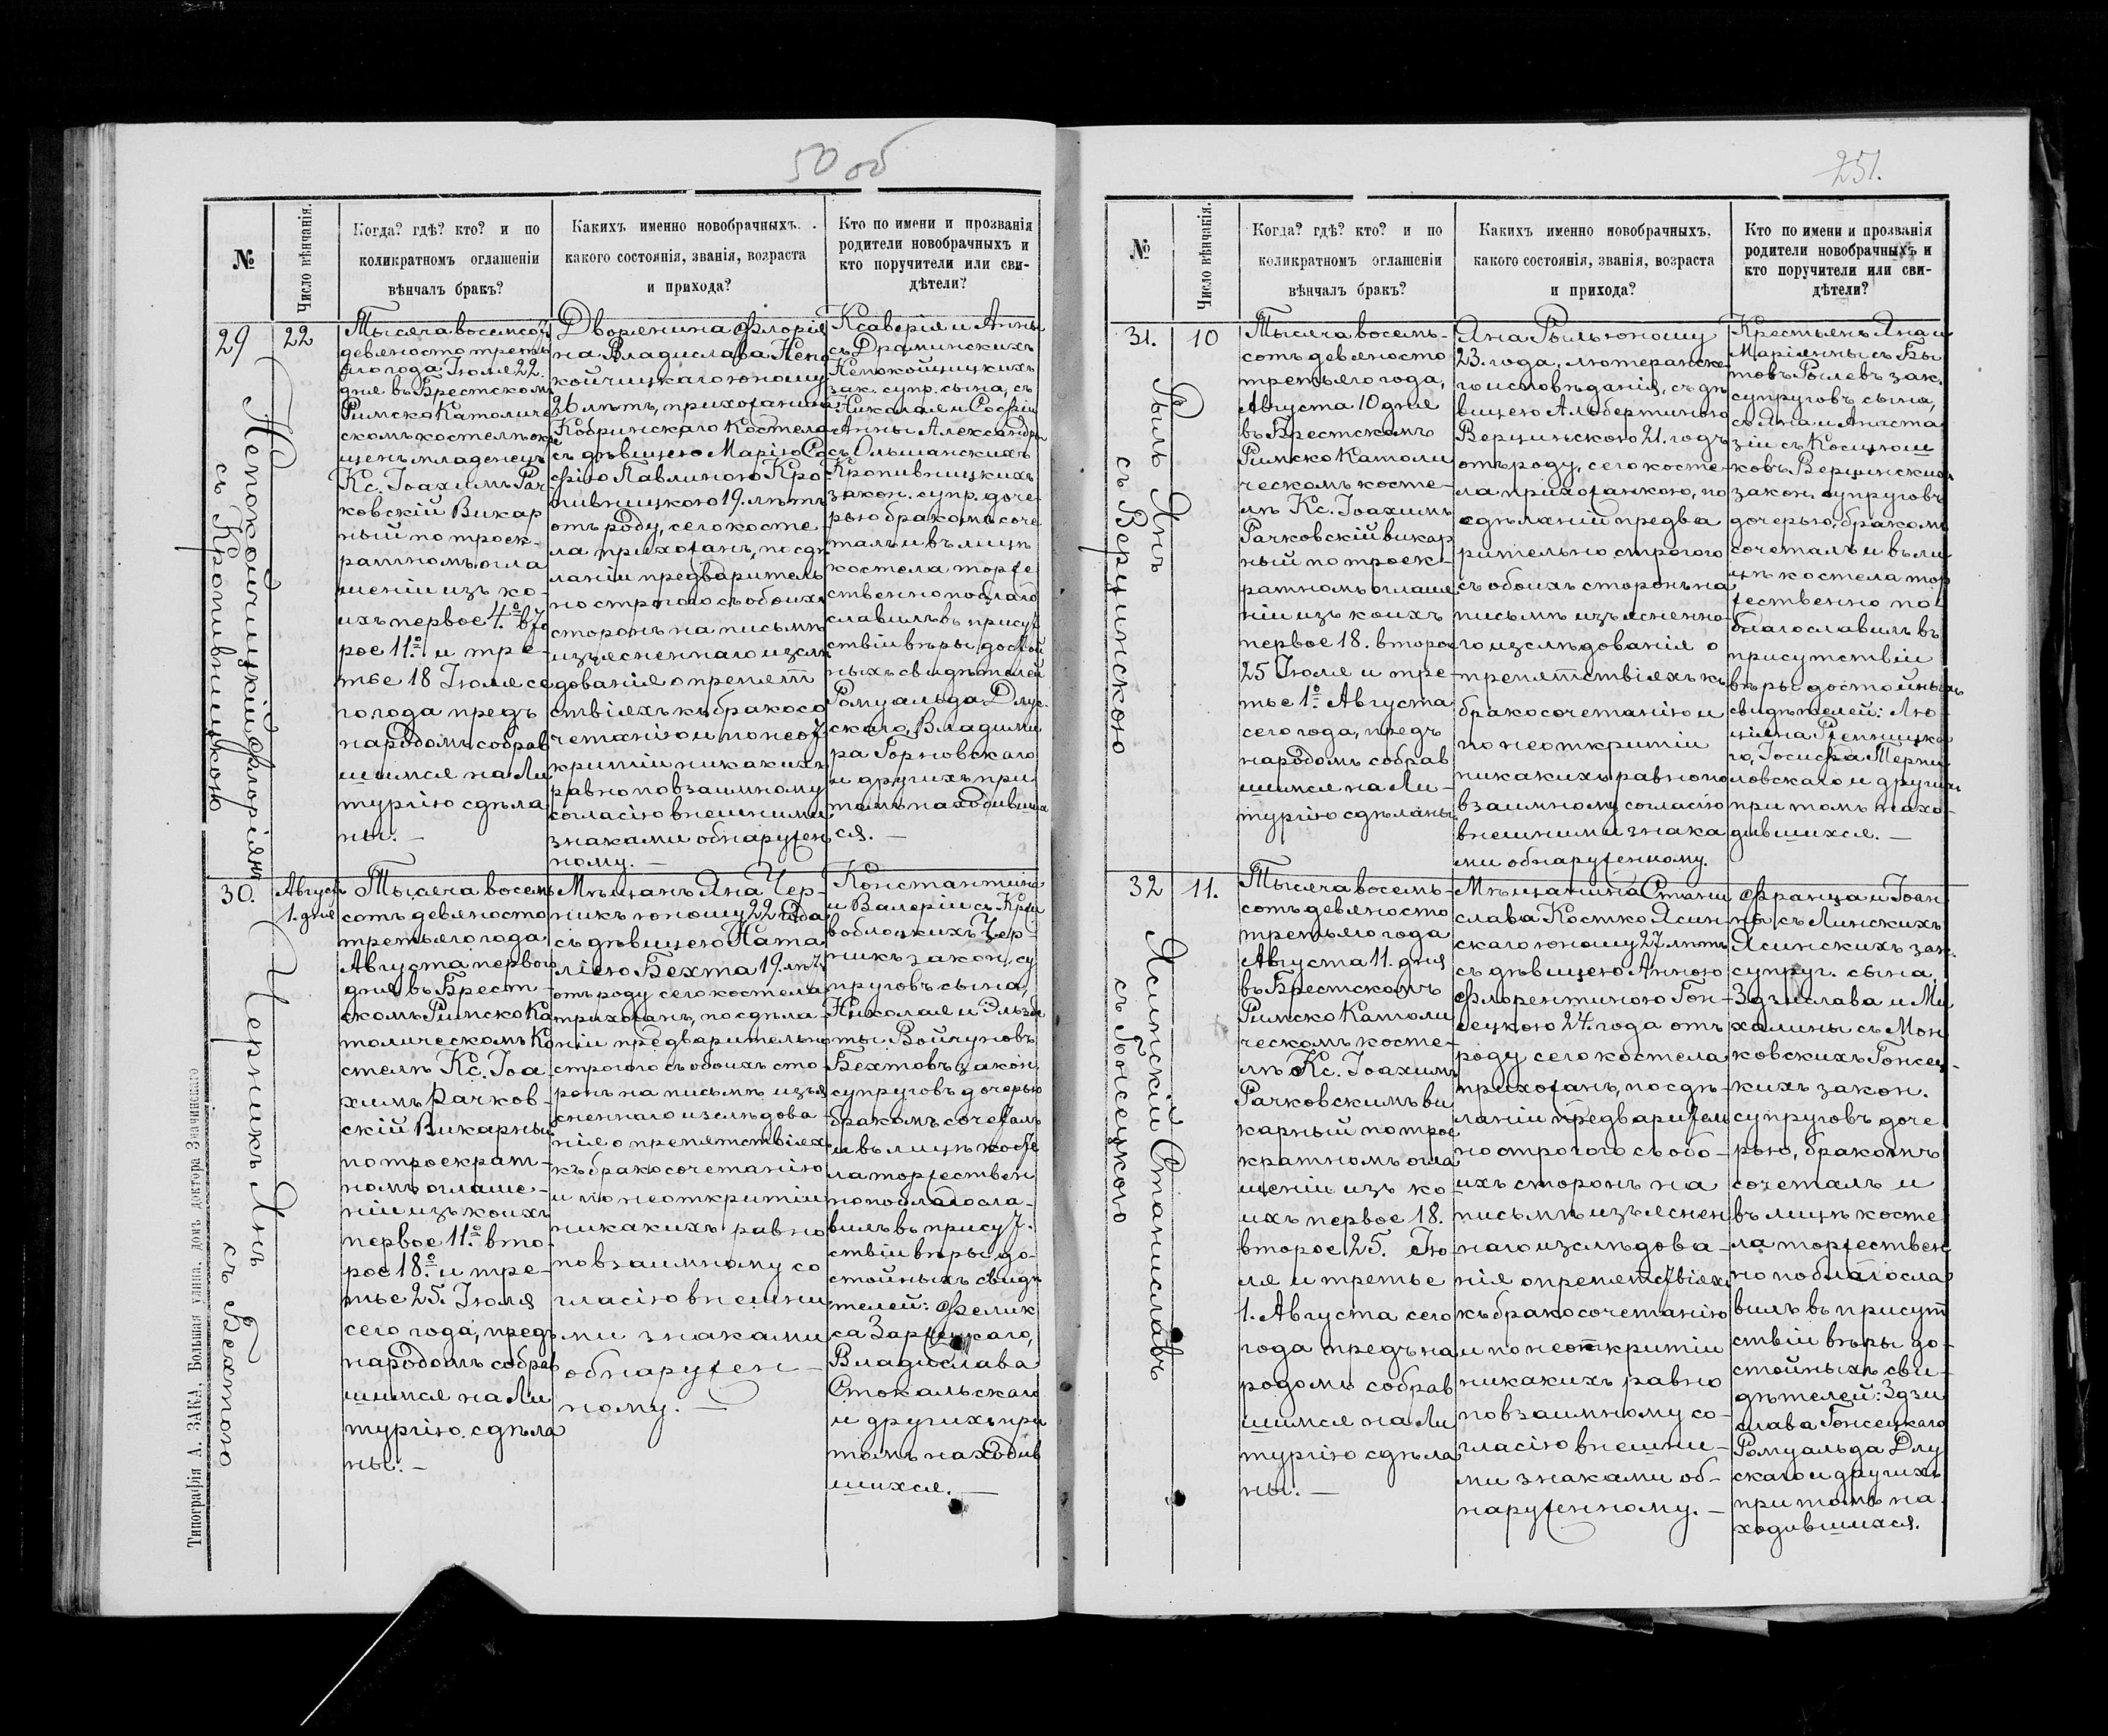 50 об
№
Число вѣнчанія.
Когда? гдѣ? кто? и по
коликратномъ оглашеніи
вѣнчалъ бракъ?
Какихъ именно новобрачныхъ.
какого состоянія, званія, возраста
и прихода?
Кто по имени и прозванія
родители новобрачныхъ и
кто поручители или сви-
дѣтели?
29
22
Непокойчицкій Флоріянъ
съ Кропивницкою
Тысяча восемсот
девяносто треть
яго года Іюля 22.
дня въ Брестскомъ
Римско Католиче
скомъ костелѣ
Кс. Іоахимъ Рач-
ковскій Викар
ный по троек-
ратномъ огла
шеніи изъ ко-
ихъ первое 4.º вто
рое 11.º и тре-
тье 18 Іюля се
го года предъ
народомъ собрав
шимся на Ли
тургію сдѣла
ны. —
Дворянина Флорія
на Владислава Непо
койчицкаго юношу
26 лѣтъ, прихожанина
Кобринскаго Костела
съ дѣвицею Маріею Со
фіею Павлиною Кро-
пивницкою 19. лѣтъ
отъ роду, сего косте-
ла прихожанъ, по сдѣ
ланіи предваритель
но строгого съ обоихъ
сторонъ на письмѣ
изъясненнаго изслѣ
дованія о препят
ствіяхъ къ бракосо
четанію и по неот
крытіи никакихъ
равно по взаимному
согласію внешними
знаками обнаружен
ному. —
Ксаверія и Анны
съ Драминскихъ
Непокойчицкихъ
зак. супр. сына, съ
Николая и Софіи
Анны Александры
съ Ольшанскихъ
Кропивницкихъ
закон. супр. доче-
рью бракомъ соче
талъ и въ лицѣ
костела торже
ственно поблаго
славилъ въ присут
ствіи вѣры достой
ныхъ свидѣтелей
Ромуальда Длус-
скаго, Владими
ра Горновскаго
и другихъ при
томъ находивших
ся. —
30.
Августа
1. дня
Черникъ Янъ
съ Бехтою
Тысяча восемь
сотъ девяносто
третьяго года
Августа первого
дня въ Брест-
скомъ Римско Ка
толическомъ Ко
стелѣ Кс. Іоа-
химъ Рачков-
скій Викарный
по троекрат-
номъ оглаше-
ніи изъ коихъ
первое 11.º вто-
рое 18.º и тре-
тье 25. Іюля
сего года, предъ
народомъ собрав
шимся на Ли
тургію сдѣла
ны. —
Мѣщанъ Яна Чер-
никъ юношу 22 года
съ дѣвицею Ната
ліею Бехта 19. лѣтъ
отъ роду сего костела
прихожанъ, по сдѣла-
ніи предварительно
строгого съ обоихъ сто
ронъ на письмѣ изъя
сненнаго изслѣдова-
нія о препятствіяхъ
къ бракосочетанію
и по неоткрытіи
никакихъ равно
по взаимному со
гласію внешни
ми знаками
обнаружен-
ному. —
Константина
и Валеріи съ Кри
воблоцкихъ Чер-
никъ закон. су
пруговъ сына,
Николая и Эльзбе
ты Войчуновъ
Бехтовъ закон.
супруговъ дочерью
бракомъ сочеталъ
и въ лицѣ косте
ла торжествен
но поблагосла-
вилъ въ присут.
ствіи вѣры до-
стойныхъ свидѣ
телей: Феликса
са Зарѣцкаго,
Владислава
Стокальскаго
и другихъ при
томъ находив
шихся. —
Типографія А. ЗАКА, Большая улица, домъ доктора Значинскаго
251.
№
Число вѣнчанія.
Когда? гдѣ? кто? и по
коликратномъ оглашеніи
вѣнчалъ бракъ?
Какихъ именно новобрачныхъ,
какого состоянія, званія, возраста
и прихода?
Кто по имени и прозванія
родители новобрачныхъ и
кто поручители или сви-
дѣтели?
31.
10
Рыль Янъ
съ Верцинскою
Тысяча восемь-
сотъ девяносто
третьяго года,
Августа 10 дня
въ Брестскомъ
Римско Католи
ческомъ косте-
лѣ Кс. Іоахимъ
Рачковскій викар
ный по троек-
ратномъ оглаше
ніи изъ коихъ
первое 18. второе
25 Іюля и тре-
тье 1.º Августа
сего года, предъ
народомъ собрав
шимся на Ли-
тургію сдѣланы
Яна Рыль юношу
23. года, лютеранска
го исповѣданія, съ дѣ
вицею Альбертиною
Верцинскою 21. годъ
отъ роду, сего косте-
ла прихожанкою, по
сдѣланіи предва
рительно строгого
съ обоихъ сторонъ на
письмѣ изъясненна-
го изслѣдованія о
препятствіяхъ къ
бракосочетанію и
по неоткрытіи
никакихъ равно по
взаимному согласію
внешними знака
ми обнаруженному.
Крестьянъ Яна и
Маріянны съ Бы
товъ Рылевъ зак.
супруговъ сына,
съ Яна и Анаста
зіи съ Косцюш
ковъ Верцинскихъ
закон. супруговъ
дочерью, бракомъ
сочеталъ и въ ли
цѣ костела тор
жественно по
благославилъ въ
присутствіи
вѣры достойныхъ
свидѣтелей: Лю
ціяна Рѣпницка
го, Іосифа Терпи
ловскаго и другихъ
при томъ нахо-
дившихся. —
32
11.
Ясинскій Станиславъ
съ Гонсецкою
Тысяча восемь-
сотъ девяносто
третьяго года
Августа 11. дня
въ Брестскомъ
Римско Католи
ческомъ косте-
лѣ Кс. Іоахимъ
Рачковскимъ ви
карный по трое
кратномъ огла
шеніи изъ ко-
ихъ первое 18.
второе 25. Ію-
ля и третье
1. Августа сего
года предъ на
родомъ собрав
шимся на Ли
тургію сдѣла
ны. —
Мѣщанина Стани
слава Костко Ясин-
скаго юношу 27 лѣтъ
съ дѣвицею Анною
Флорентиною Гон-
сецкою 24. года отъ
роду сего костела
прихожанъ, по сдѣ-
ланіи предваритель
но строгого съ обо-
ихъ сторонъ на
письмѣ изъяснен
наго изслѣдова-
нія о препятствіяхъ
къ бракосочетанію
и по неоткрытіи
никакихъ равно
по взаимному со-
гласію внешни-
ми знаками об-
наруженному. —
Франца и Іоан
ны съ Линскихъ
Ясинскихъ зак.
супруг. сына,
Здзислава и Ми
халины съ Мон
ковскихъ Гонсец-
кихъ закон.
супруговъ доче
рью, бракомъ
сочеталъ и
въ лицѣ косте
ла торжествен
но поблагосла
вилъ въ присут
ствіи вѣры до-
стойныхъ сви-
дѣтелей: Здзи
слава Гонсецкаго
Ромуальда Длу
скаго и другихъ
при томъ на
ходившихся.